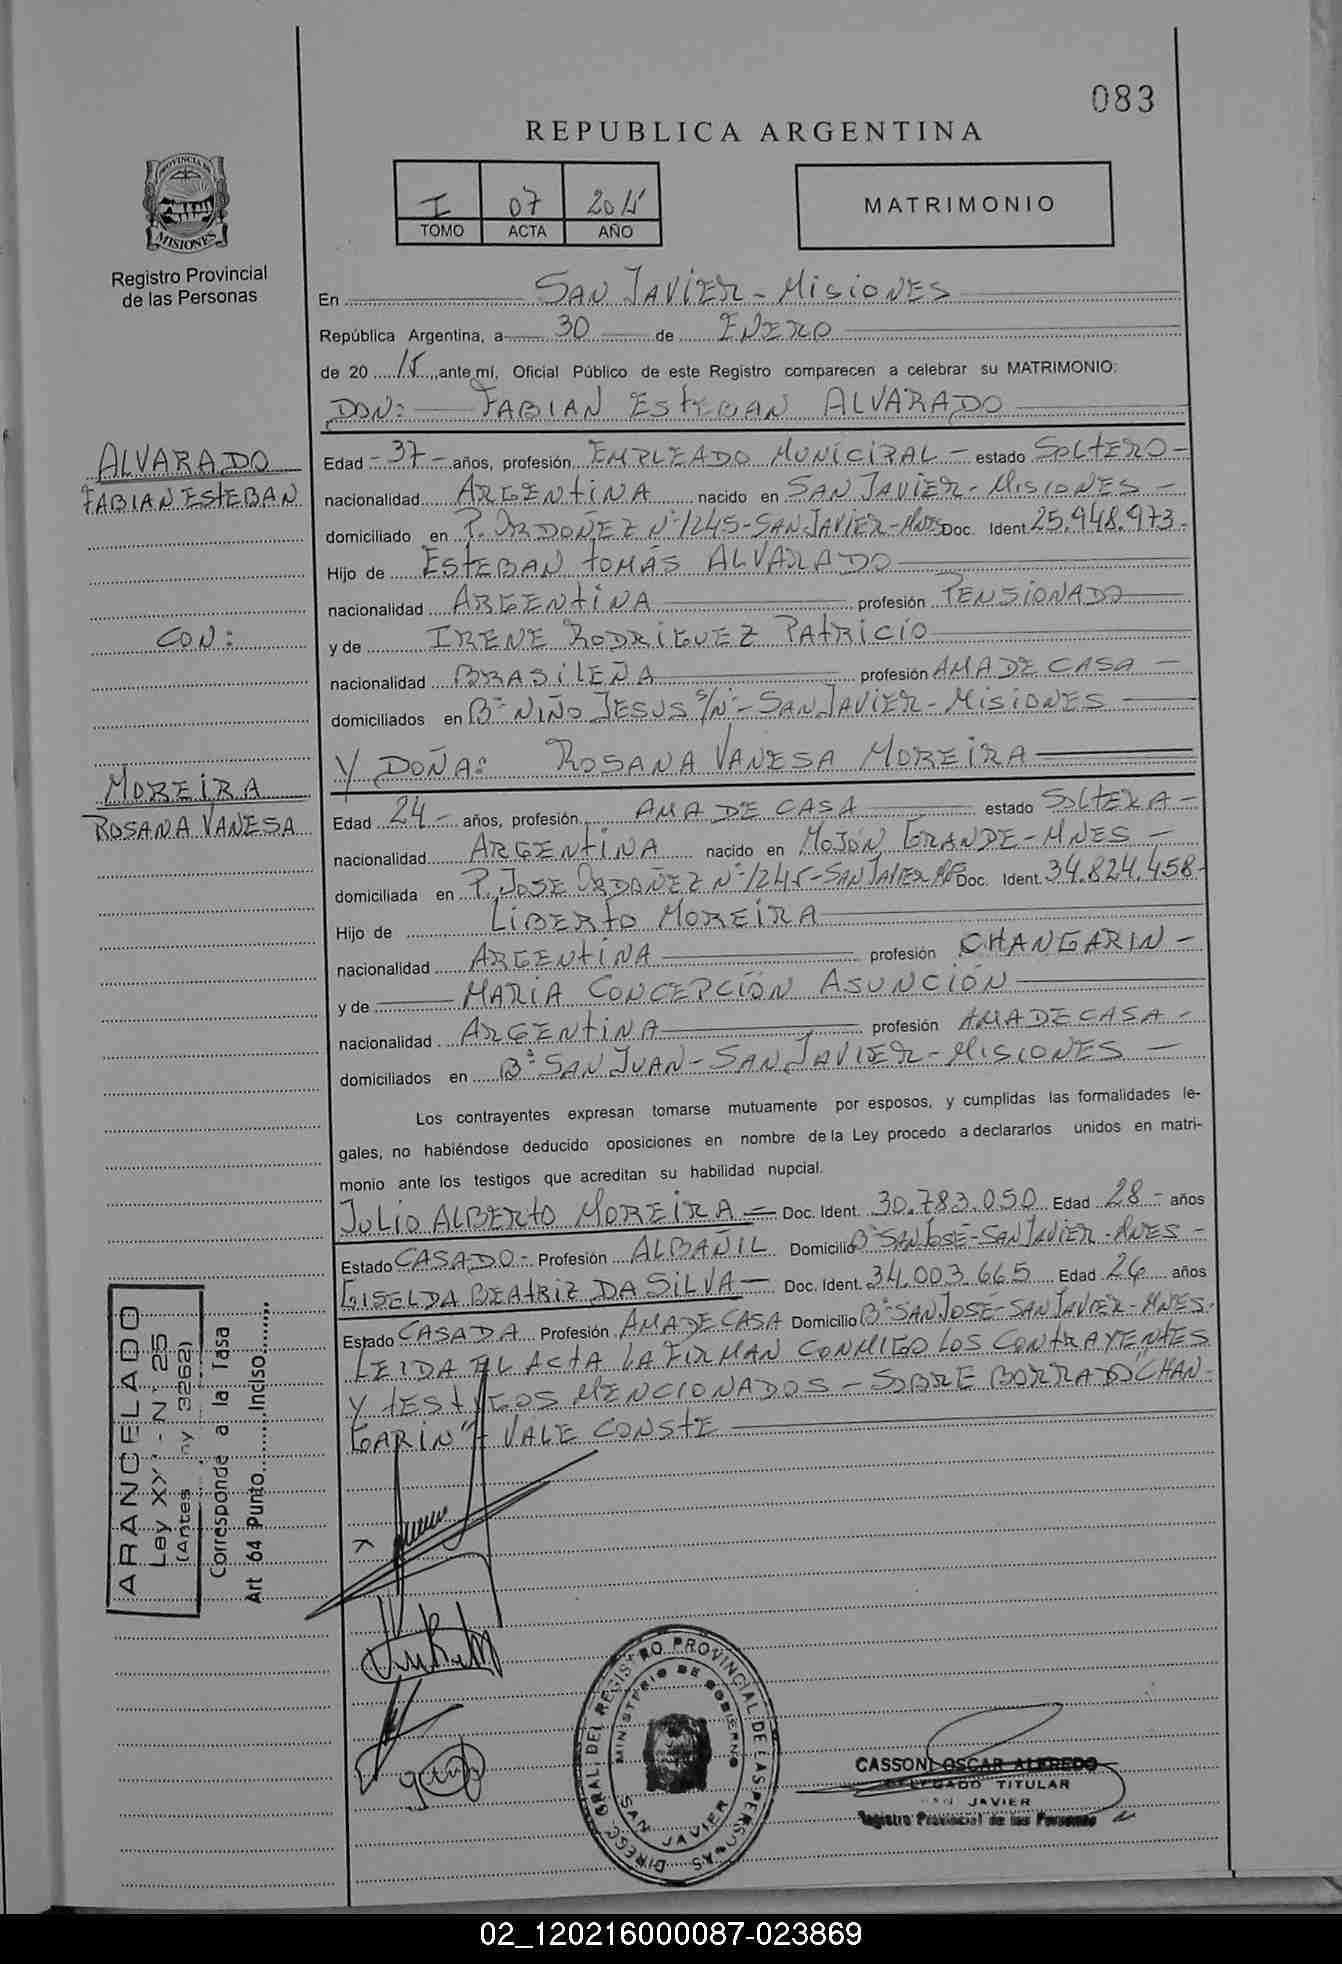 083
REPUBLICA ARGENTINA
I 07 2015
TOMO ACTA AÑO
MATRIMONIO
PROVINCIA DE
MISIONES
Registro Provincial
de las Personas
En SAN JAVIER - MISIONES
República Argentina, a 30 de ENERO
de 20 15 ante mí, Oficial Público de este Registro comparecen a celebrar su MATRIMONIO:
DON: FABIAN ESTEBAN ALVARADO
ALVARADO
FABIAN ESTEBAN
CON:
MOREIRA
ROSANA VANESA
Edad - 37 - años, profesión EMPLEADO MUNICIPAL - estado SOLTERO -
nacionalidad ARGENTINA nacido en SAN JAVIER - MISIONES -
domiciliado en P. ORDOÑEZ Nº 1245 - SAN JAVIER - MNES Doc. Ident. 25.948.973 -
Hijo de ESTEBAN TOMÁS ALVARADO
nacionalidad ARGENTINA profesión PENSIONADO
y de IRENE RODRIGUEZ PATRICIO
nacionalidad BRASILEÑA profesión AMA DE CASA -
domiciliados en Bº NIÑO JESUS S/Nº - SAN JAVIER - MISIONES
Y DOÑA: ROSANA VANESA MOREIRA
Edad 24 - años, profesión AMA DE CASA estado SOLTERA -
nacionalidad ARGENTINA nacido en MOJÓN GRANDE - MNES -
domiciliada en P. JOSE ORDOÑEZ Nº 1245 - SAN JAVIER Doc. Ident. 34.824.458 -
Hijo de LIBERTO MOREIRA
nacionalidad ARGENTINA profesión CHANGARIN -
y de MARIA CONCEPCIÓN ASUNCIÓN
nacionalidad ARGENTINA profesión AMA DE CASA -
domiciliados en Bº SAN JUAN - SAN JAVIER - MISIONES -
Los contrayentes expresan tomarse mutuamente por esposos, y cumplidas las formalidades le-
gales, no habiéndose deducido oposiciones en nombre de la Ley procedo a declararlos unidos en matri-
monio ante los testigos que acreditan su habilidad nupcial.
JULIO ALBERTO MOREIRA - Doc. Ident. 30.783.050 Edad 28 - años
Estado CASADO - Profesión ALBAÑIL Domicilio Bº SAN JOSÉ - SAN JAVIER - MNES -
GISELDA BEATRIZ DA SILVA - Doc. Ident. 34.003.665 Edad 26 años
Estado CASADA Profesión AMA DE CASA Domicilio Bº SAN JOSÉ - SAN JAVIER - MNES -
LEIDA EL ACTA LA FIRMAN CONMIGO LOS CONTRAYENTES
Y TESTIGOS MENCIONADOS - SOBRE BORRADO "CHAN-
GARIN" - VALE CONSTE
ARANCELADO
Ley XXI - Nº 25
(Antes ny 3262)
Corresponde a la Tasa
Art 64 Punto......Inciso......
DIREGC. GRAL. DEL REGISTRO PROVINCIAL DE LAS PERSONAS
MINISTERIO DE GOBIERNO
SAN JAVIER
CASSONI OSCAR ALFREDO
DELEGADO TITULAR
SAN JAVIER
Registro Provincial de las Personas
02_120216000087-023869